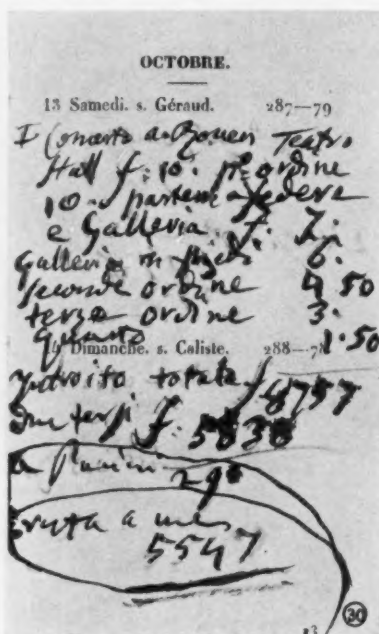 OCTOBRE.
13 Samedi. s. Géraud. 287-79
I Concerto a Rouen Teatro
Stall f. 10. pº ordine
10. parterre a sedere
e Galleria f. 7.
Galleria in piedi 6.
secondo ordine 4 50
terzo ordine 3.
quarto 1.50
14 Dimanche. s. Caliste. 288-78
introito totale f 8757
due terzi f. 5838
a 290
resta a me
5547
30